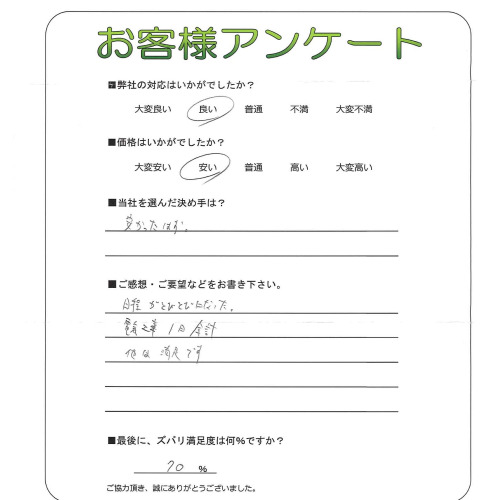 お客様アンケート
■弊社の対応はいかがでしたか？
大変良い 良い 普通 不満 大変不満
■価格はいかがでしたか？
大変安い 安い 普通 高い 大変高い
■当社を選んだ決め手は？
安かったはず。
■ご感想・ご要望などをお書き下さい。
日程がとびとびになった。
1日 余計
他は 満足です
■最後に、ズバリ満足度は何%ですか？
70 %
ご協力頂き、誠にありがとうございました。